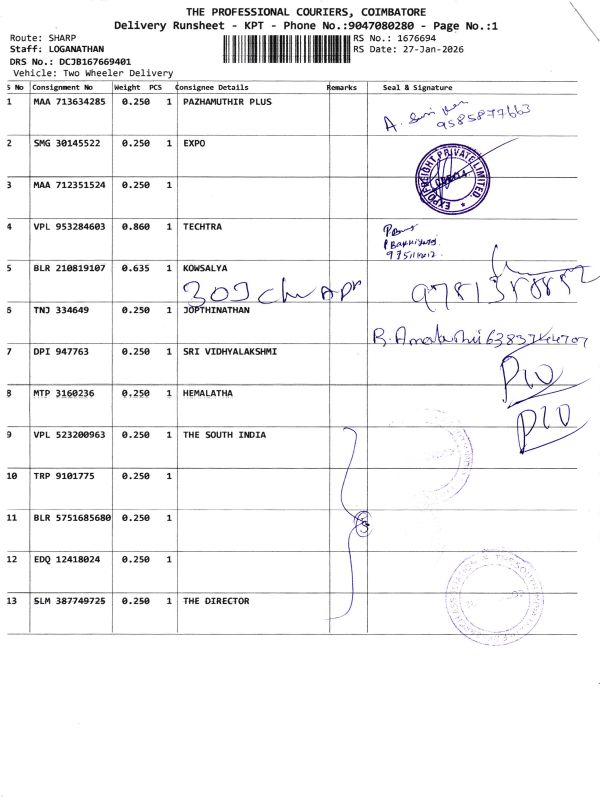 THE PROFESSIONAL COURIERS, COIMBATORE
Delivery Runsheet - KPT - Phone No.:9047080280 - Page No.:1
Route: SHARP
RS No.: 1676694
Staff: LOGANATHAN
RS Date: 27-Jan-2026
DRS No.: DCJB167669401
Vehicle: Two Wheeler Delivery
S No Consignment No Weight PCS Consignee Details Remarks Seal & Signature
1 MAA 713634285 0.250 1 PAZHAMUTHIR PLUS
A.
9585877663
2 SMG 30145522 0.250 1 EXPO
EXPO FREIGHT PRIVATE LIMITED
3 MAA 712351524 0.250 1
4 VPL 953284603 0.860 1 TECHTRA
5 BLR 210819107 0.635 1 KOWSALYA
6 TNJ 334649 0.250 1 JOPTHINATHAN
7 DPI 947763 0.250 1 SRI VIDHYALAKSHMI
8 MTP 3160236 0.250 1 HEMALATHA
9 VPL 523200963 0.250 1 THE SOUTH INDIA
10 TRP 9101775 0.250 1
11 BLR 5751685680 0.250 1
5
12 EDQ 12418024 0.250 1
13 SLM 387749725 0.250 1 THE DIRECTOR